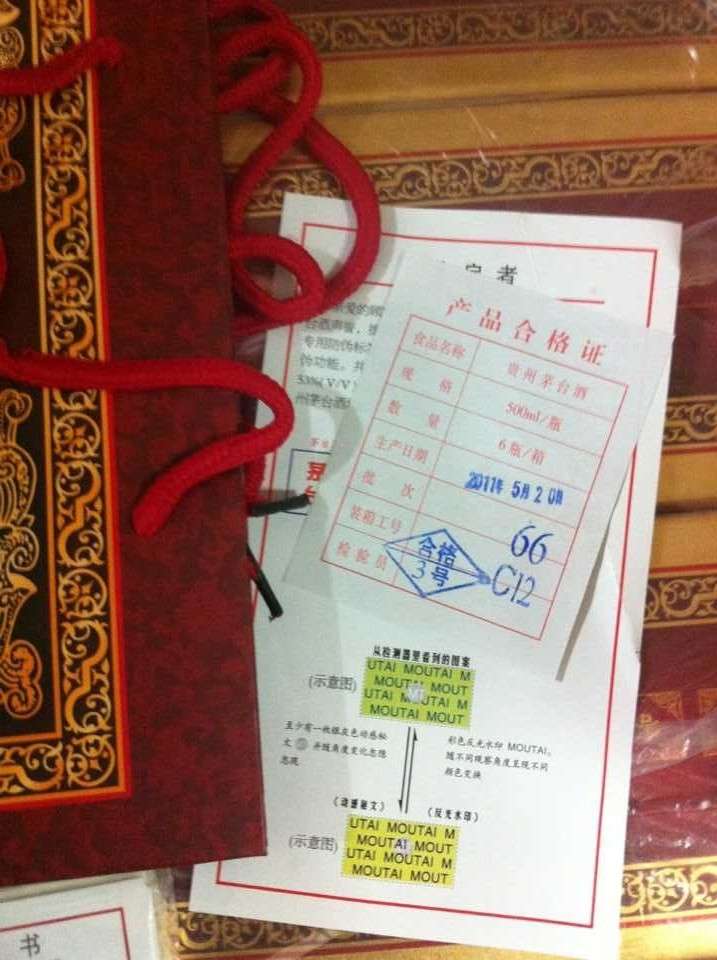 者
产品合格证
食品名称 贵州茅台酒
规格 500ml/瓶
数量 6瓶/箱
生产日期 2011年5月20日
批次 66
装箱工号 C12
检验员 合格 3号
专用防伪标
伪功能。并
53%(V/V)
州茅台酒
从检测器里看到的图案
(示意图)
UTAI MOUTAI M
MOUTAI MOUT
UTAI MOUTAI M
MOUTAI MOUT
至少有一枚银灰色动感秘
文 并随角度变化忽隐
忽现
彩色反光水印 MOUTAI,
随不同观察角度呈现不同
颜色变换
(动感秘文)
(反光水印)
(示意图)
UTAI MOUTAI M
MOUTAI MOUT
UTAI MOUTAI M
MOUTAI MOUT
书